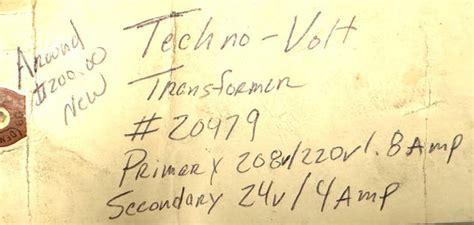 Around
$200.00
New
Techno-Volt
Transformer
#20479
Primary 208v/220v/.8Amp
Secondary 24v/4Amp